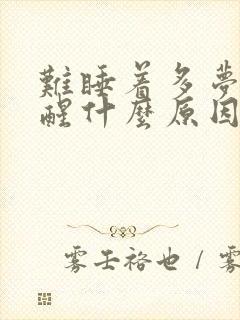 難睡着多夢
醒什麼原因
雾王裕也 / 雾